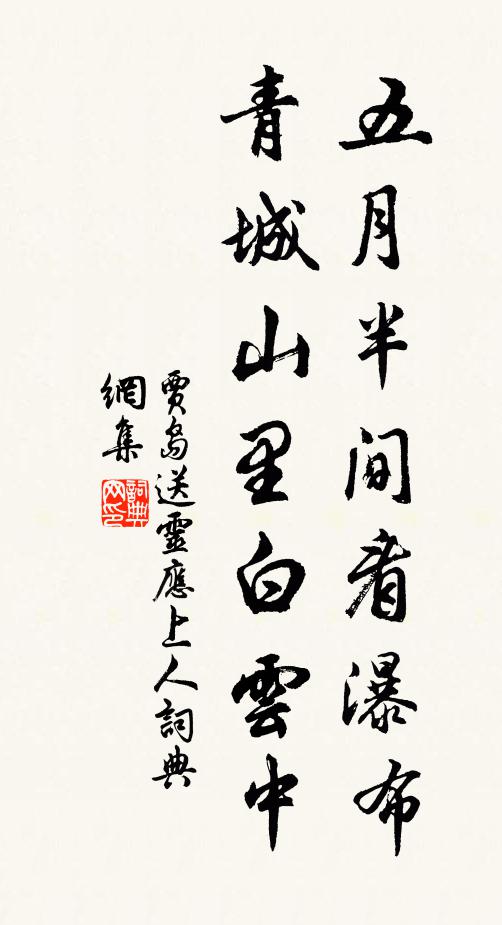 五月半間看瀑布
青城山里白雲中
賈島送靈應上人詞典
網集
詞典
网印